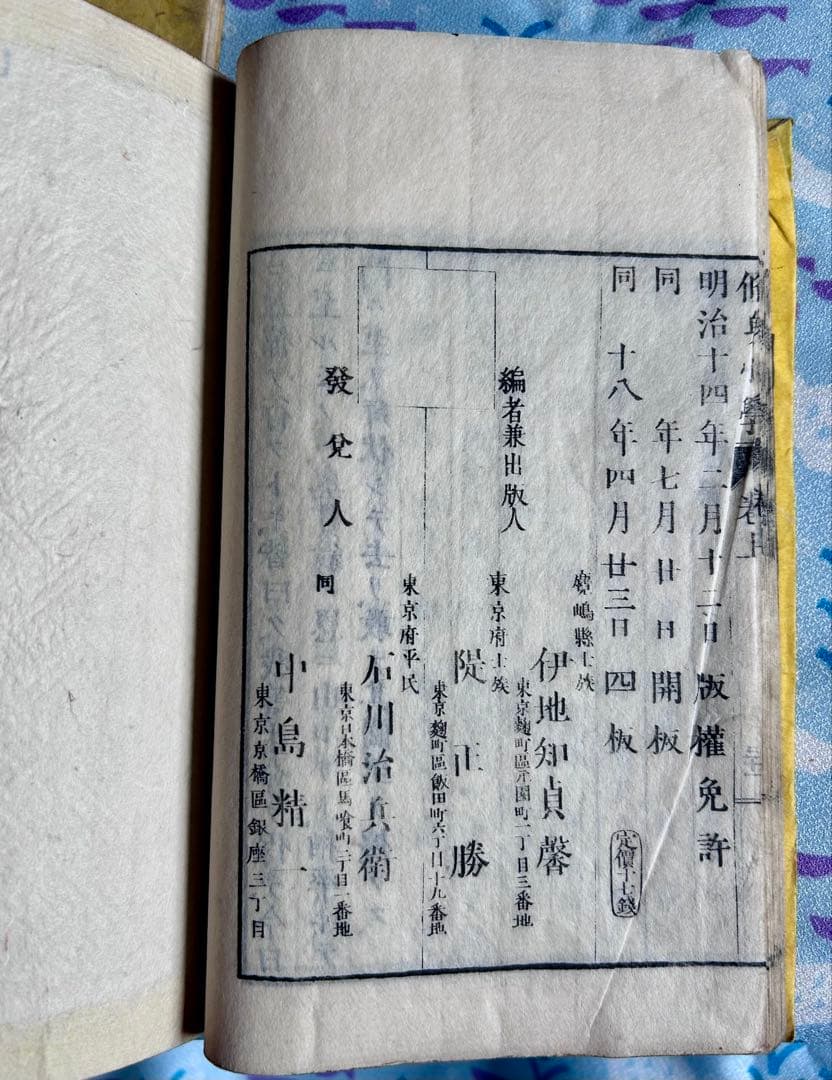 修身小學 卷五
明治十四年二月十二日版權免許
同 年七月廿 日開板
同 十八年四月廿三日四板
定價十七錢
編者兼出版人
鹿嶋縣士族
伊地知貞馨
東京麹町區元園町二丁目三番地
東京府士族
隄正勝
東京麹町區飯田町六丁目十九番地
發兌人
東京府平民
石川治兵衛
東京日本橋區馬喰町二丁目一番地
同
中島精一
東京京橋區銀座三丁目